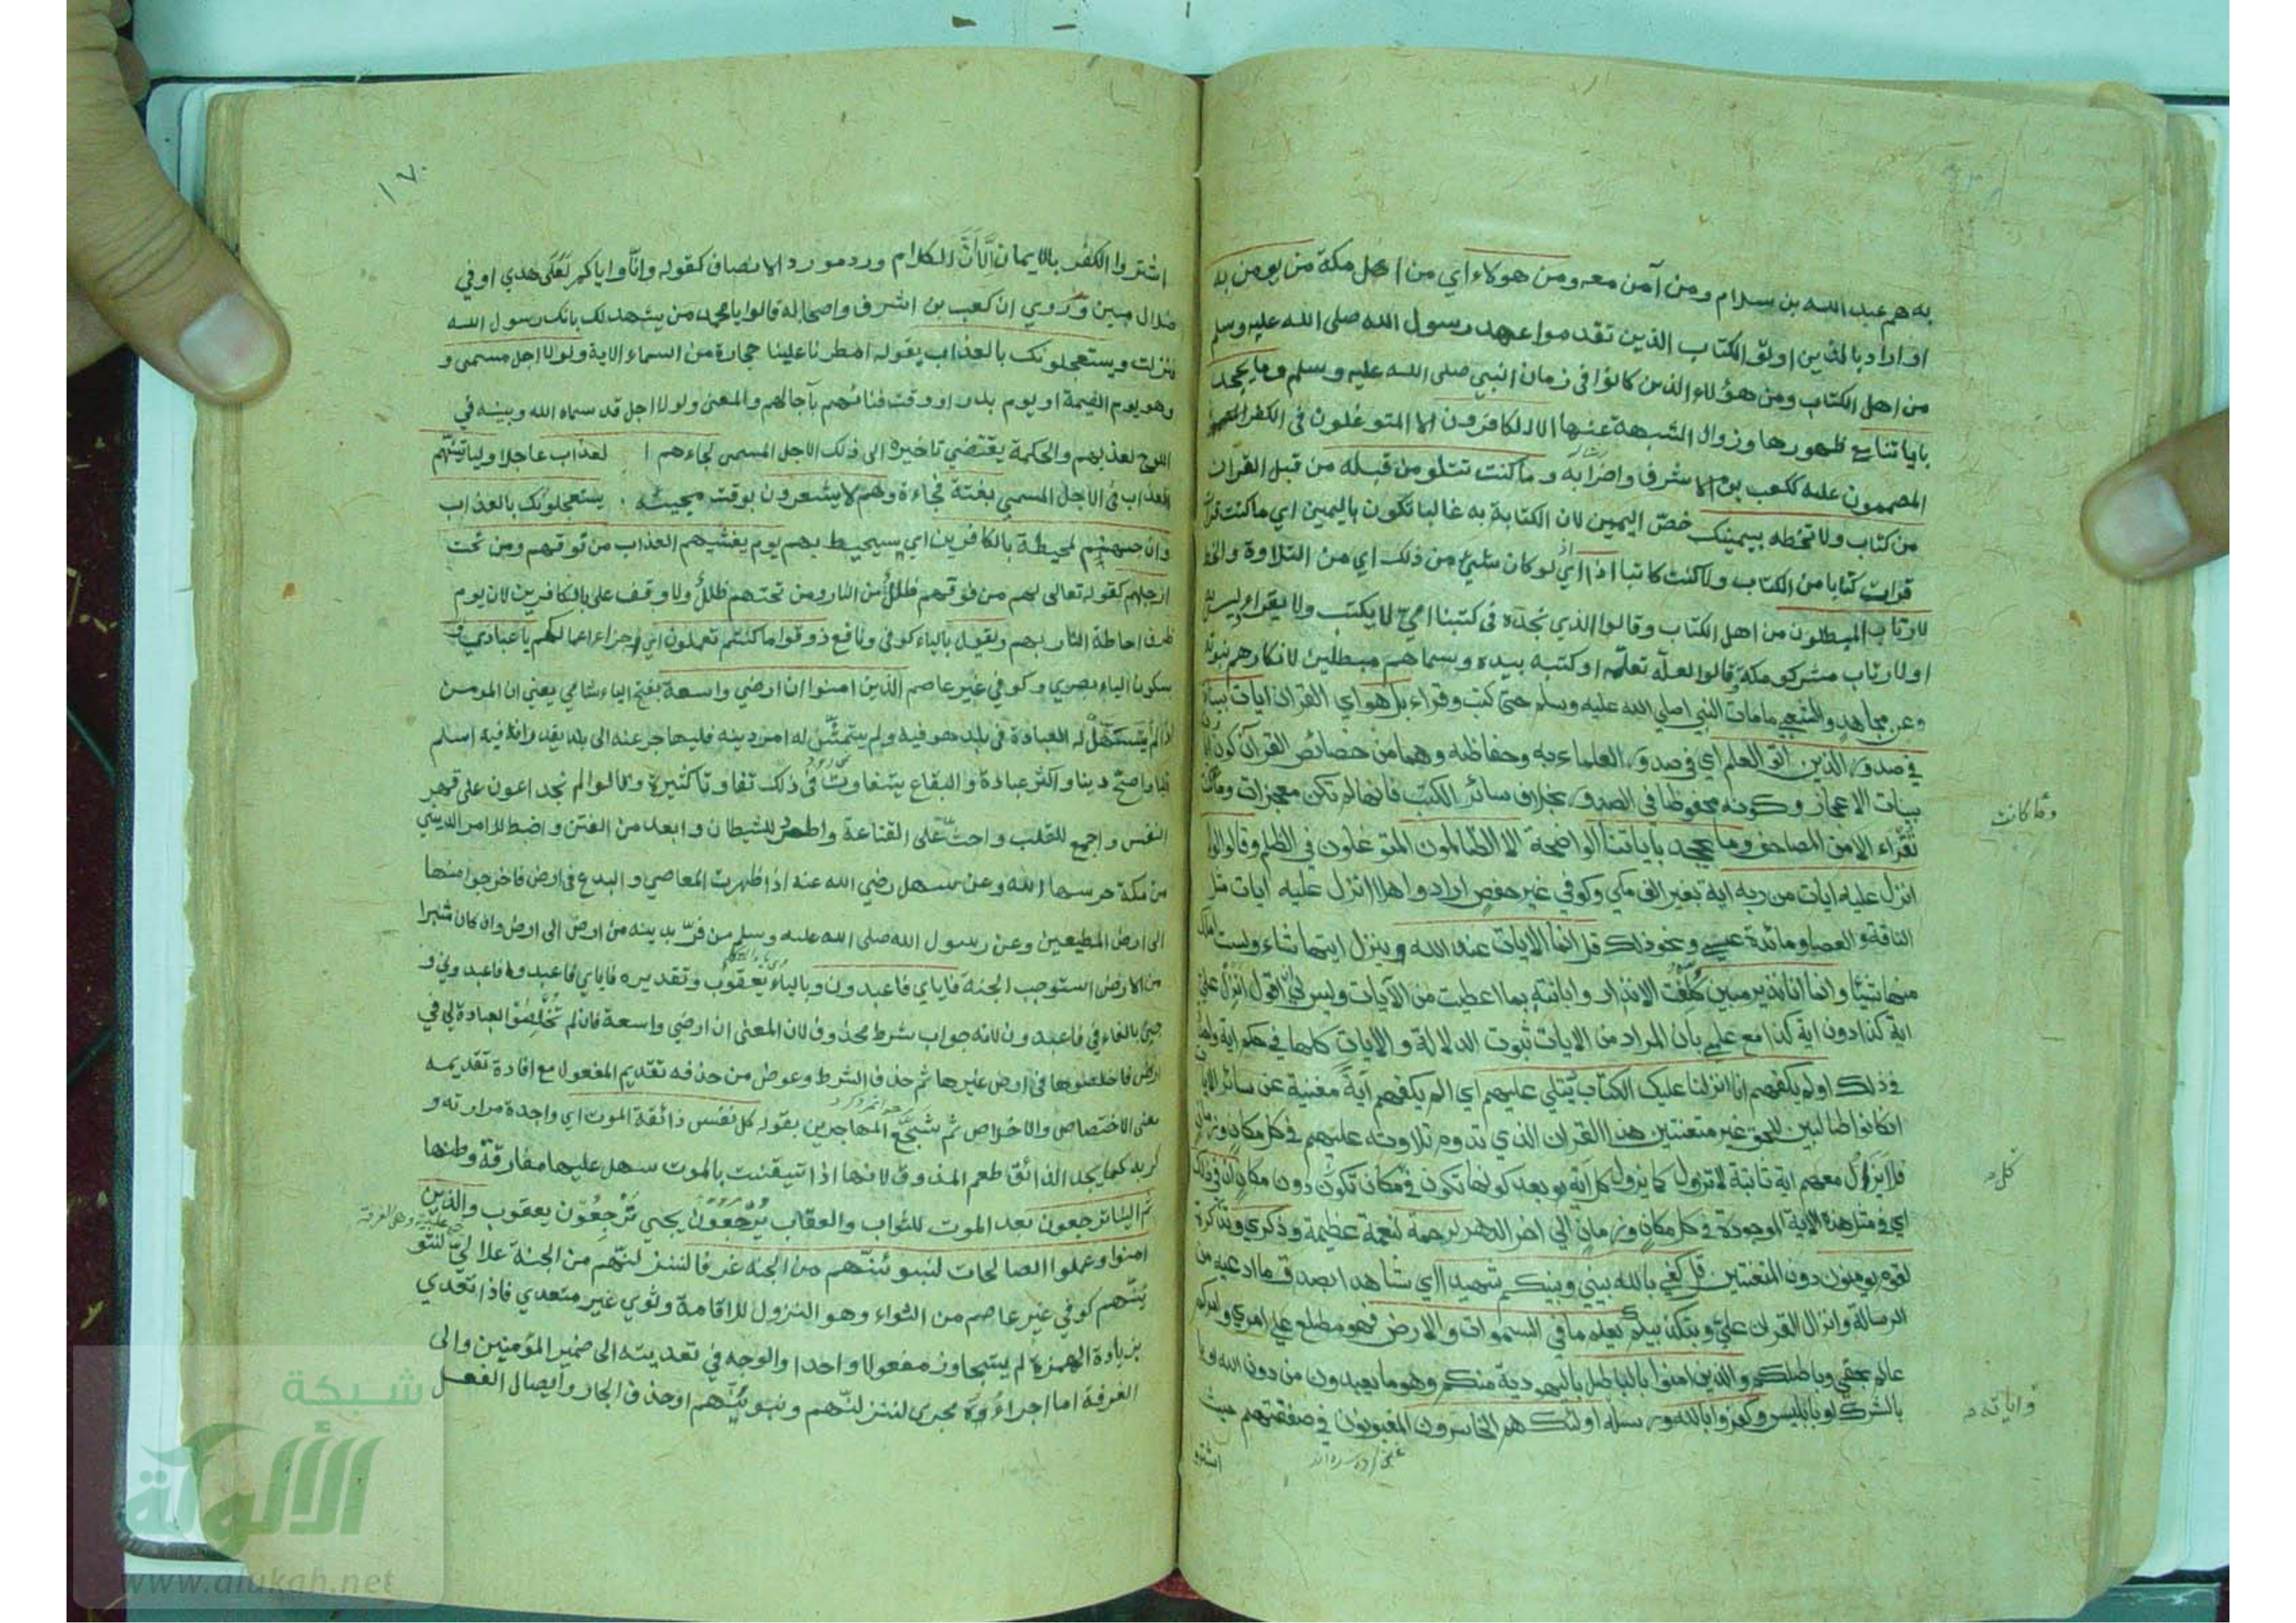 به هم عبد الله بن سلام ومن آمن معه ومن هولاء اي من اهل مكة من يومن به
او اراد بالذين اوتوا الكتاب الذين تقدموا عهد رسول الله صلى الله عليه وسلم
من اهل الكتاب ومن هؤلاء الذين كانوا في زمان النبي صلى الله عليه وسلم وما يجحد
باياتنا مع ظهورها وزوال الشبهة عنها الا الكافرون الا المتوغلون في الكفر
المصممون عليه ككعب بن الاشرف واضرابه وما كنت تتلو من قبله من قبل القران
من كتاب ولا تخطه بيمينك خصّ اليمين لان الكتابة به غالبا تكون باليمين اي ما كنت قرأت
قرات كتابا من الكتاب ولا كنت كاتبا اذا اي لو كان شيء من ذلك اي من التلاوة والخط
لارتاب المبطلون من اهل الكتاب وقالوا الذي نجده في كتبنا امي لا يكتب ولا يقراء وليس به
او لارتاب مشركو مكة وقالوا لعله تعلمه او كتبه بيده وسماهم مبطلين لانكارهم نبوته
وعن مجاهد والشعبي ما مات النبي صلي الله عليه وسلم حتى كتب وقراء بل هو اي القران ايات بينات
في صدور الذين اوتوا العلم اي في صدور العلماء به وحفاظه وهما من خصائص القرآن كون
بينات الاعجاز وكونه محفوظا في الصدور بخلاف سائر الكتب فانها لم تكن معجزات وما كانت
تقراء الا من المصاحف وما يجحد باياتنا الواضحة الا الظالمون المتوغلون في الظلم وقالوا لولا
انزل عليه ايات من ربه اية بغير الف مكي وكوفي غير حفص ارادوا هلا انزل عليه ايات مثل
الناقة والعصا ومائدة عيسى ونحو ذلك قل انما الايات عند الله وينزل ايتها شاء ولست املك
منها شيئا وانما انا نذير مبين كلفت الانذار وابانته بما اعطيت من الآيات وليس لي ان اقول انزل علي
اية كذا دون اية كذا مع علمي بان المراد من الايات ثبوت الدلالة والايات كلها في حكم اية واحدة
في ذلك اولم يكفهم انا انزلنا عليك الكتاب يتلي عليهم اي الم يكفهم آية مغنية عن سائر الايات
ان كانوا طالبين للحق غير متعنتين هذا القران الذي تدوم تلاوته عليهم في كل مكان وزمان
فلا يزال معهم اية ثابتة لا تزول كما يزول كل آية بعد كونها تكون في مكان دون مكان ان في ذلك
اي في مثل هذه الاية الموجودة في كل مكان وزمان الي اخر الدهر لرحمة لنعمة عظيمة وذكري وتذكرة
لقوم يومنون دون المتعنتين قل كفي بالله بيني وبينكم شهيدا اي شاهدا بصدق ما ادعيه من
الرسالة وانزال القران عليّ وبتكذيبكم يعلم ما في السموات والارض فهو مطلع علي امري وامركم
عالم بحقي وباطلكم والذين امنوا بالباطل باليهودية منكم وهو ما يعبدون من دون الله
بالشرك او بابليس وكفروا بالله ورسله اولئك هم الخاسرون المغبونون في صفقتهم حيث
اشتروا
وما كانت
كل
واياته
١٧٠
اشتروا الكفر بالايمان الا ان الكلام ورد مورد الانصاف كقوله وانا واياكم لعلى هدي او في
ضلال مبين وروي ان كعب بن اشرف واصحابه قالوا يا محمد من يشهد لك بانك رسول الله
فنزلت ويستعجلونك بالعذاب بقوله امطر علينا حجارة من السماء الاية ولولا اجل مسمى و
وهو يوم القيمة او يوم بدر او وقت فنائهم بآجالهم والمعنى ولولا اجل قد سماه الله وبينه في
اللوح لعذبهم والحكمة يقتضي تاخيره الى ذلك الاجل المسمى لجاءهم ا لعذاب عاجلا ولياتينهم
العذاب في الاجل المسمي بغتة فجاءة وهم لا يشعرون بوقت مجيئه . يستعجلونك بالعذاب
وان جهنم لمحيطة بالكافرين اي سيحيط بهم يوم يغشيهم العذاب من فوقهم ومن تحت
ارجلهم كقوله تعالى لهم من فوقهم ظلل من النار ومن تحتهم ظلل ولا وقف على بالكافرين لان يوم
ظرف احاطة النار بهم ويقول بالياء كوفي ونافع ذوقوا ما كنتم تعملون اي جزاء اعمالكم يا عبادي
بسكون الياء بصري وكوفي غير عاصم الذين امنوا ان ارضي واسعة بفتح الياء شامي يعني ان المومن
اذا لم يتسهل له العبادة في بلد هو فيه ولم يتمشّ له امر دينه فليهاجر عنه الى بلد يقدر انه فيه اسلم
قلبا واصح دينا واكثر عبادة والبقاع يتفاوت في ذلك تفاوتا كثيرا وقالوا لم نجد اعون على قهر
النفس واجمع للقلب واحث على القناعة واطرد للشيطان وابعد من الفتن واضبط للامر الديني
من مكة حرسها الله وعن سهل رضي الله عنه اذا ظهرت المعاصي والبدع في ارض فاخرجوا منها
الى ارض المطيعين وعن رسول الله صلى الله عليه وسلم من فرّ بدينه من ارض الى ارض وان كان شبرا
من الارض استوجب الجنة فاياي فاعبدون وبالياء يعقوب وتقديره فاياي فاعبدوا فاعبدوني و
جيئ بالفاء في فاعبدون لانه جواب شرط محذوف لان المعنى ان ارضي واسعة فان لم تخلصوا العبادة لي في
ارض فاخلصوها في ارض غيرها ثم حذف الشرط وعوض من حذفه تقديم المفعول مع افادة تقديمه
معنى الاختصاص والاخلاص ثم شجع المهاجرين بقوله كل نفس ذائقة الموت اي واجدة مرارته و
كربه كما يجد الذائق طعم المذوق لانها اذا تيقنت بالموت سهل عليها مفارقة وطنها
ثم الينا ترجعون بعد الموت للثواب والعقاب يرجعون يحيى ترجعون يعقوب والذين
امنوا وعملوا الصالحات لنبوئنهم من الجنة غرفا لننزلنهم من الجنة علالي لنثو
ينهم كوفي غير عاصم من الثواء وهو النزول للاقامة وثوي غير متعدي فاذا تعدي
بزيادة الهمزة لم يتجاوز مفعولا واحدا والوجه في تعديته الى ضمير المؤمنين والى
الغرفة اما اجراؤه مجرى لننزلنهم ونبوئنهم او حذف الجار وايصال الفعل
شبكة
الألوكة
www.alukah.net